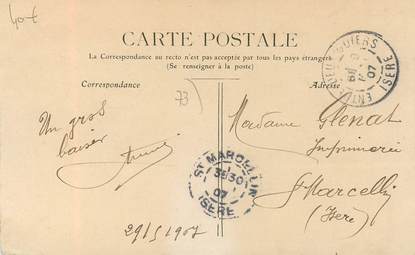 40€
CARTE POSTALE
La Correspondance au recto n'est pas acceptée par tous les pays étrangers
(Se renseigner à la poste)
Correspondance
Adresse
73
ENTRE-DEUX-GUIERS
07
ISERE
Un gros
baiser
Madame Glenat
Imprimerie
St Marcellin
(Isère)
ST MARCELLIN
30
07
ISERE
29/5 1907